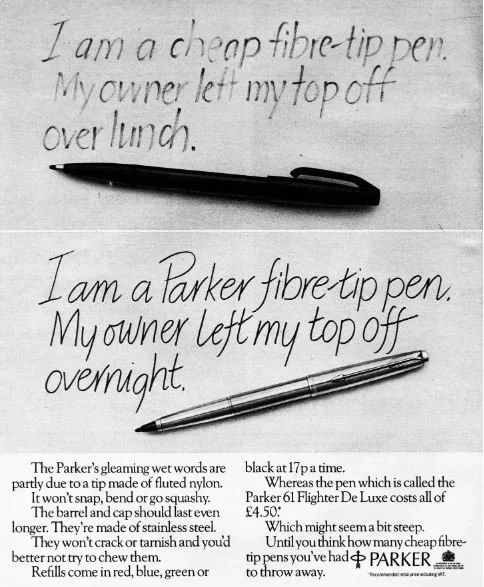 I am a cheap fibre-tip pen.
My owner left my top off
over lunch.
I am a Parker fibre-tip pen.
My owner left my top off
overnight.
The Parker's gleaming wet words are
partly due to a tip made of fluted nylon.
It won't snap, bend or go squashy.
The barrel and cap should last even
longer. They're made of stainless steel.
They won't crack or tarnish and you'd
better not try to chew them.
Refills come in red, blue, green or
black at 17p a time.
Whereas the pen which is called the
Parker 61 Flighter De Luxe costs all of
£4.50*.
Which might seem a bit steep.
Until you think how many cheap fibre-
tip pens you've had
to throw away.
PARKER
*Recommended retail price including VAT.